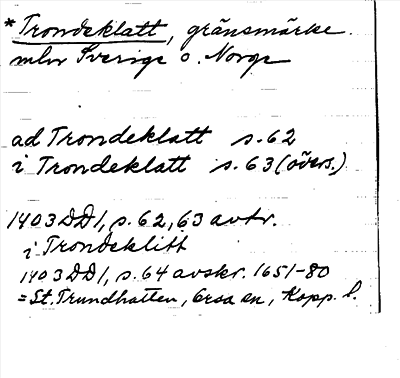 * Trondeklatt, gränsmärke
mlw Sverige o. Norge
ad Trondeklatt s. 62
i Trondeklatt s. 63 (övers.)
1403 DD 1, s. 62, 63 avtr.
i Trondeklitt
1403 DD 1, s. 64 avskr. 1651-80
= St. Trundhatten, Orsa sn, Kopp. l.